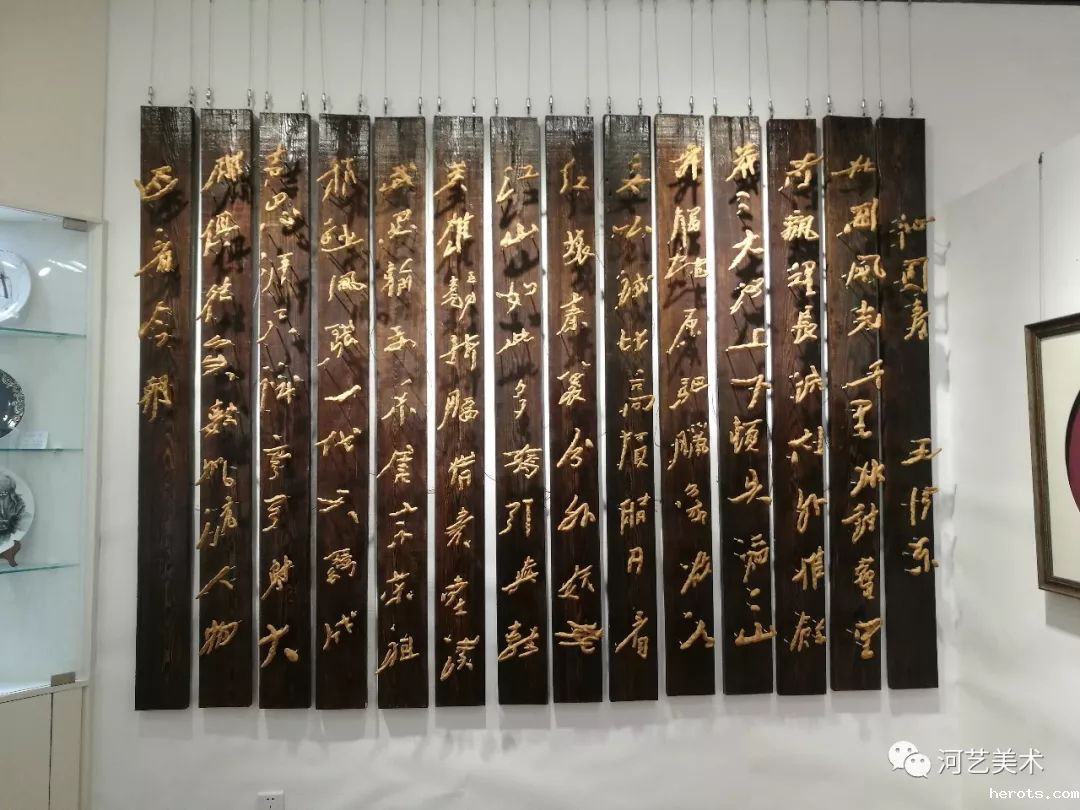 沁園春 毛泽东
北国風光千里冰封萬里
雪飘望長城内外惟餘
莽〻大河上下頓失滔〻山
舞銀蛇原驰臘象欲与天
公試比高须晴日看
红装素裹分外妖娆
江山如此多嬌引無数
英雄競折腰惜秦皇漢
武略输文采唐宗宋祖
稍逊風骚一代天骄成
吉思汗只識弯弓射大
雕俱往矣数风流人物
还看今朝
河艺美术
herots.com